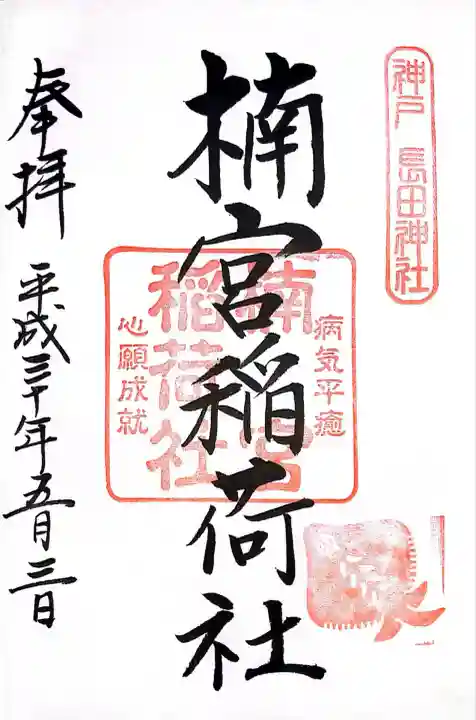 神戸 長田神社
楠宮稲荷社
病気平癒
楠宮
稲荷社
心願成就
奉拝
平成三十年五月三日